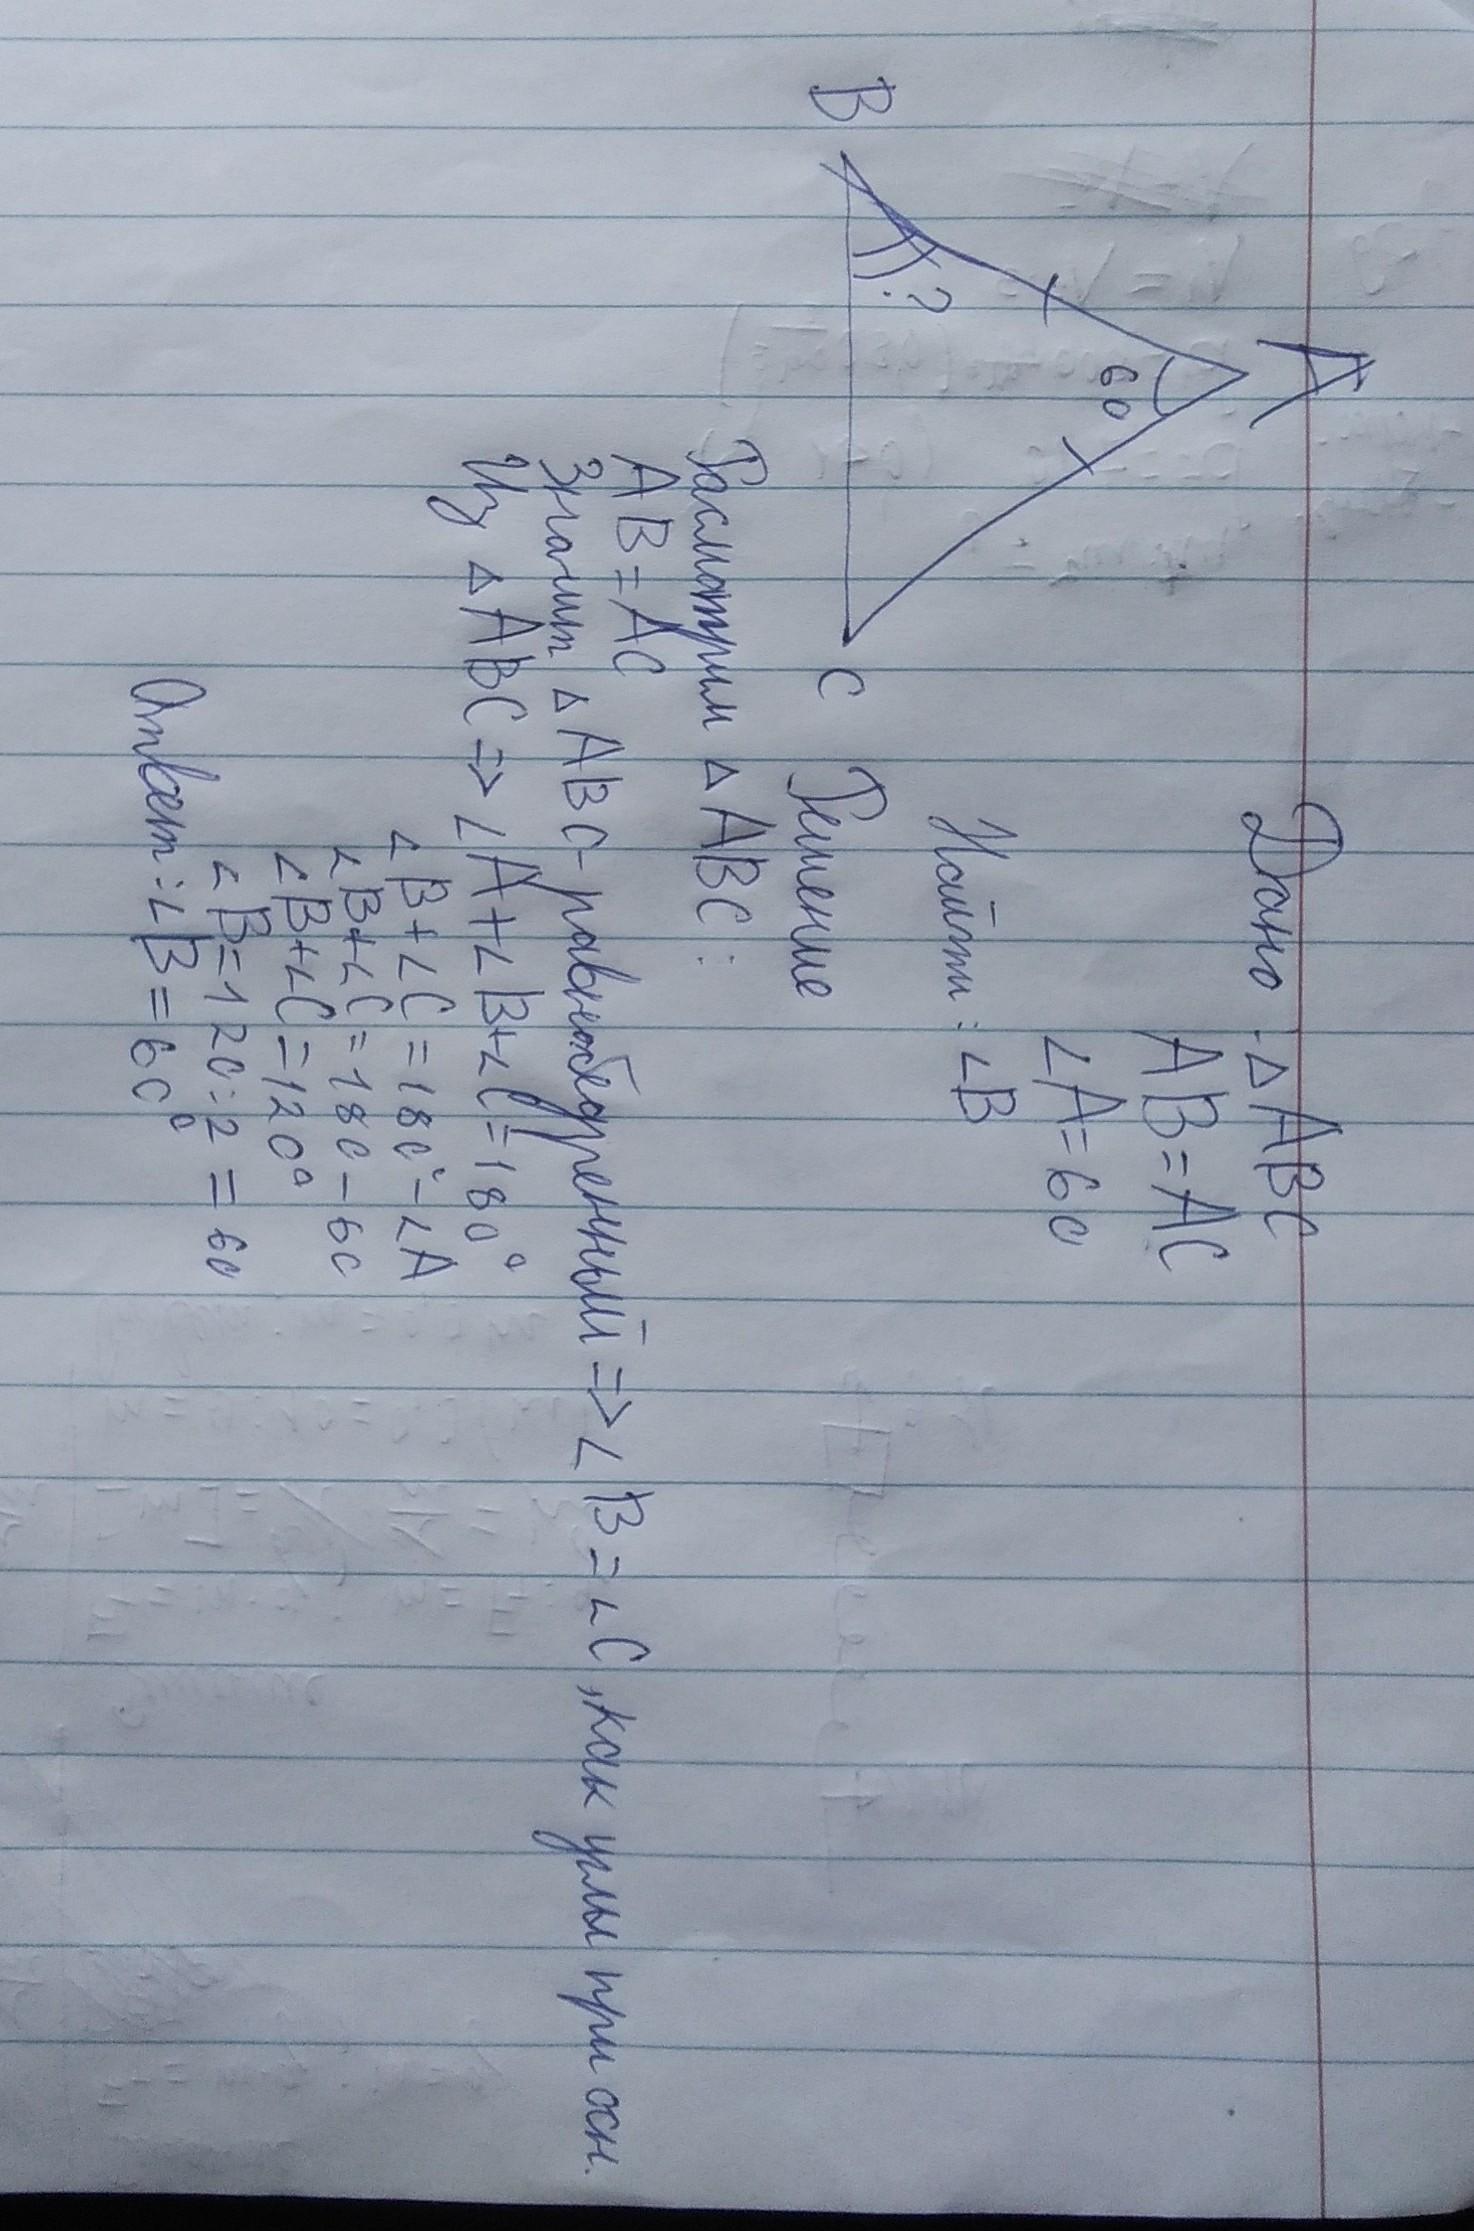 A
60
B
?
C
Дано: △ABC
AB=AC
∠A=60
Найти: ∠B
Решение
Расмотрим △ABC:
AB=AC
Значит △ABC-равнобедренный=>∠B=∠C, как углы при осн.
Из △ABC=>∠A+∠B+∠C=180°
∠B+∠C=180°-∠A
∠B+∠C=180-60
∠B+∠C=120°
∠B=120:2=60
Ответ:∠B=60°